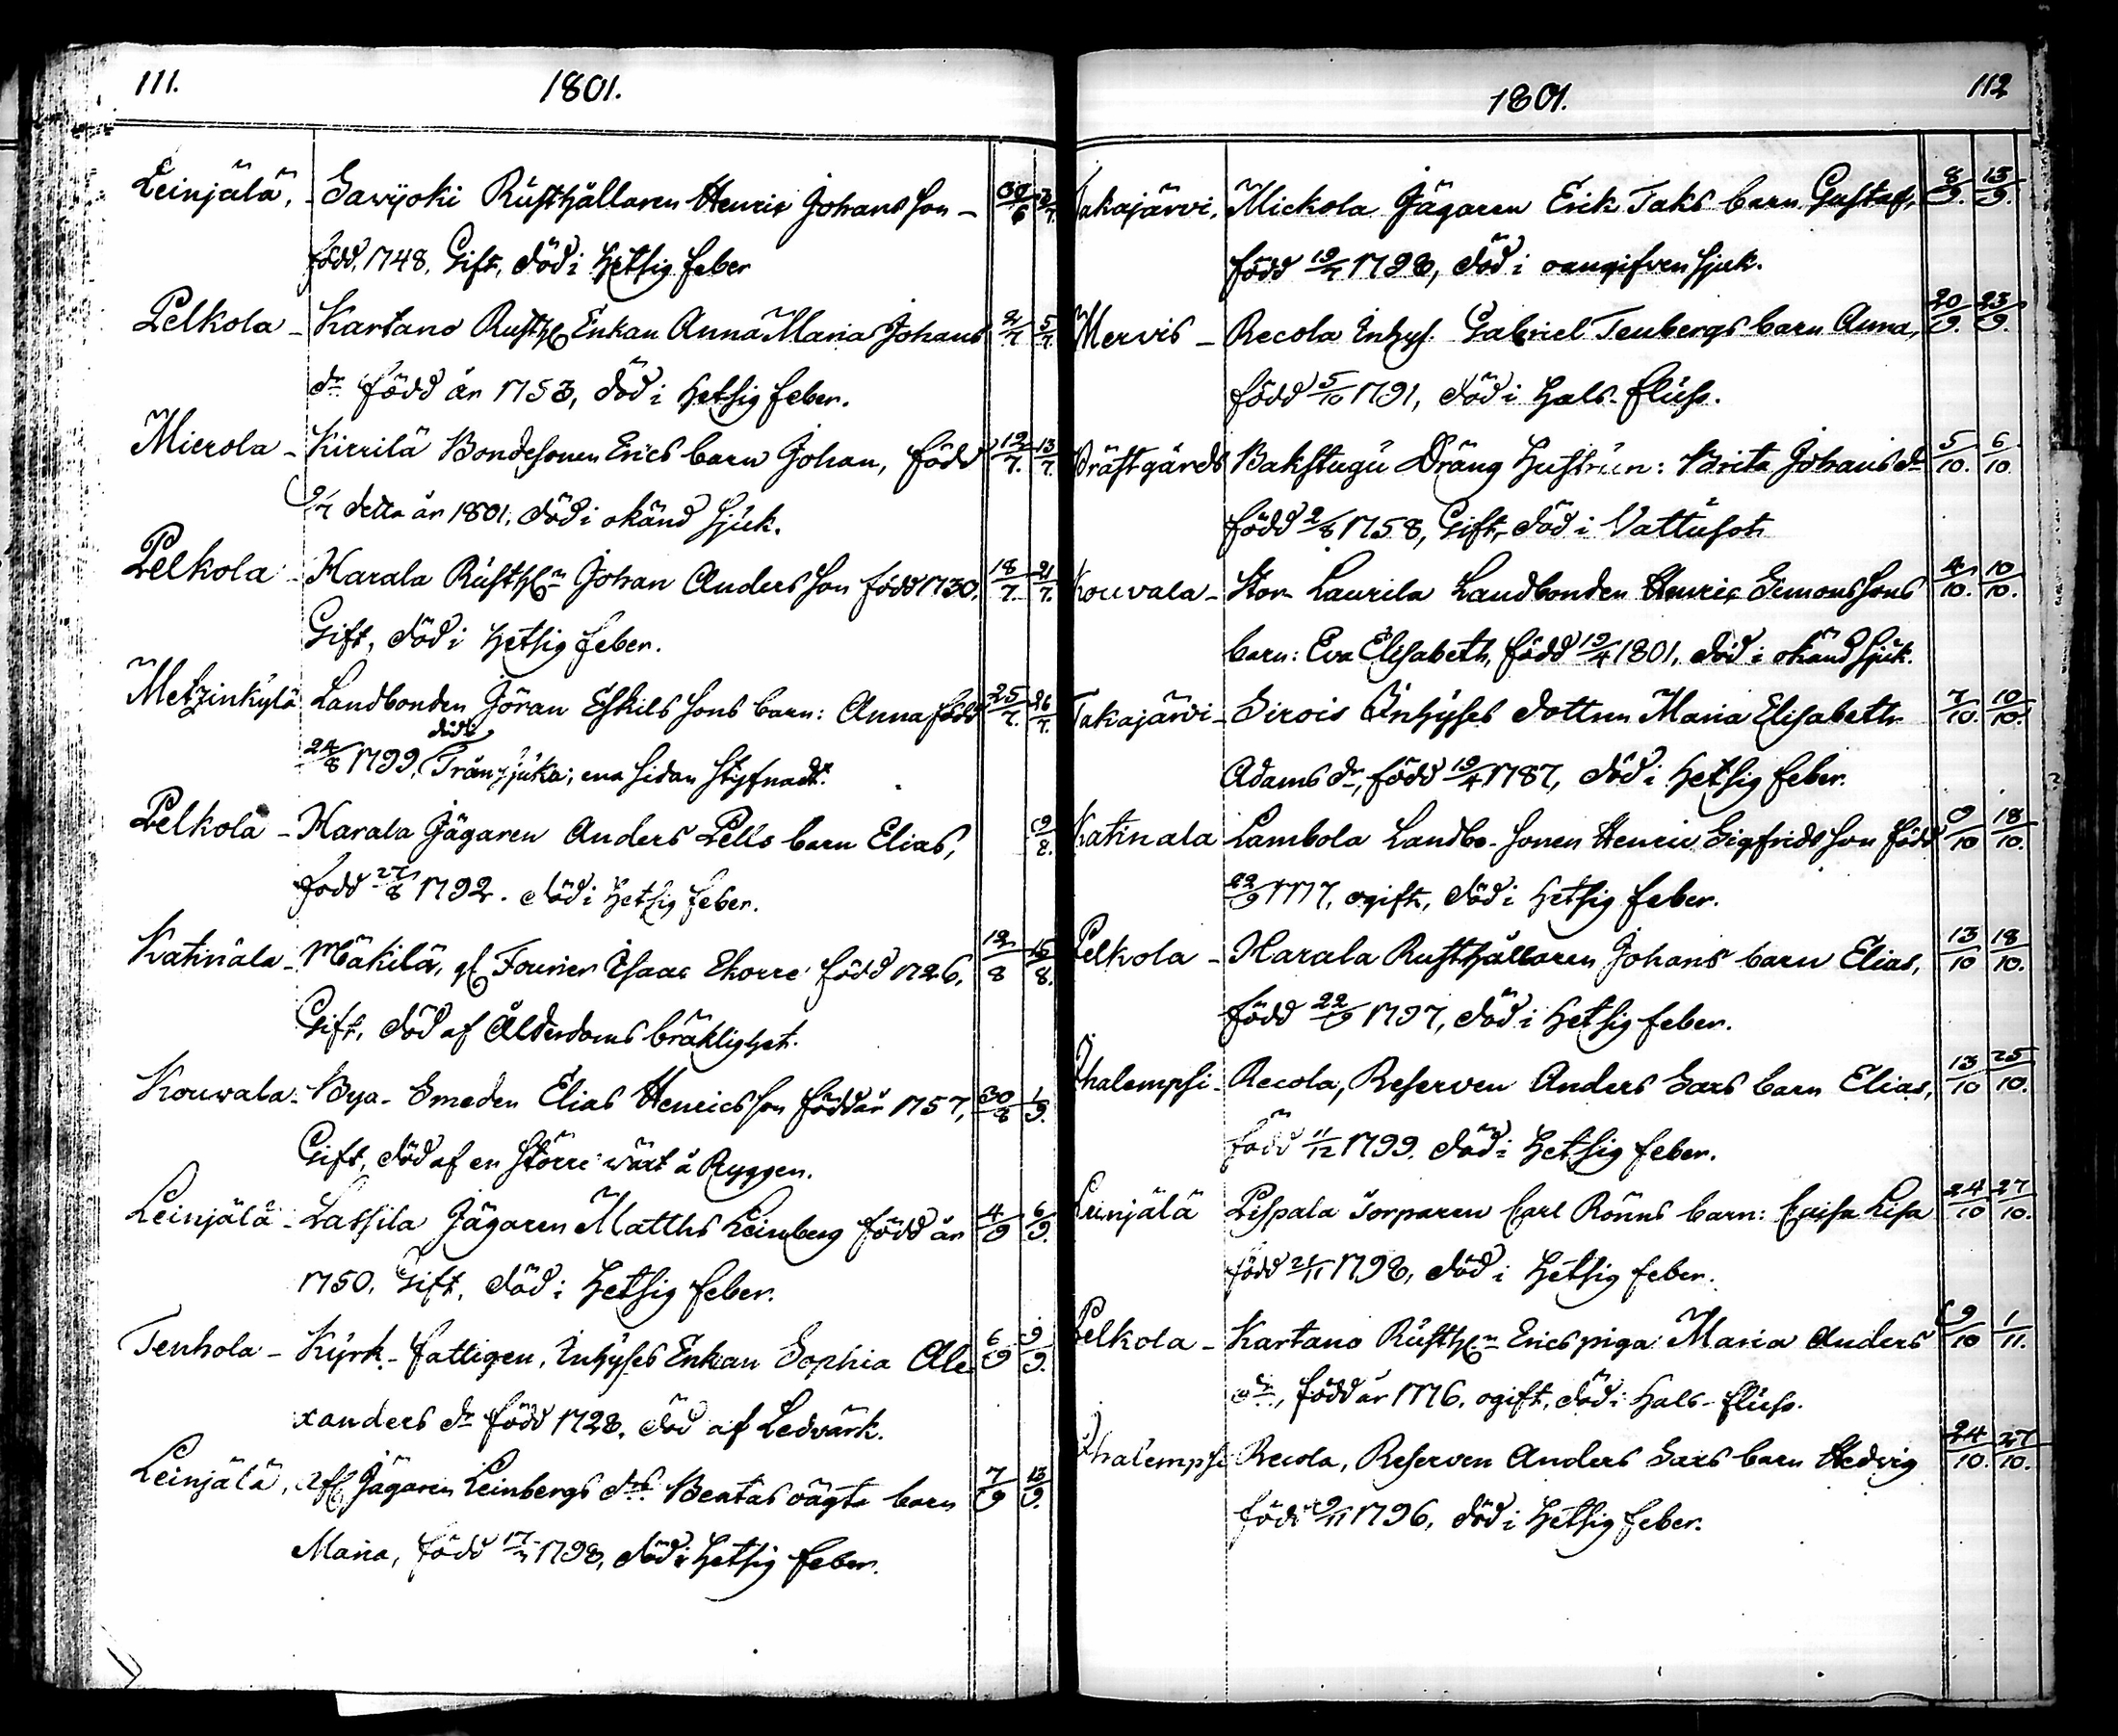 111.
1801.
Leinjälä, - Sawijoki Rusthållaren Henric Johans son - 30/6 3/7.
född. 1748. Gift, död i hetsig feber
Pelkola - Kartano Rusth. Enkan Anna Maria Johans 2/7 5/7.
dr född år 1753, död i hetsig feber.
Mierola - Kirrilä Bondesonen Erics barn Johan, född 12/7. 13/7.
9/7 detta år 1801. död i okänd sjuk.
Pelkola - Harala Rusthn Johan Anders son född 1730. 18/7. 21/7.
Gift, död i hetsig feber.
Metzinkylä Landbonden Jöran Eskils sons barn: Anna född 25/7. 26/7.
död i
24/8 1799, Trånsjuka; ena sidan styfnadt.
Pelkola - Harala Jägaren Anders Pells barn Elias, 9/8.
född 27/8 1792. död i hetsig feber.
Katinala - Mäkilä, gl Fourier Isaac Ekorre född 1726, 12/8 16/8.
Gift, död af Ålderdoms bräklighet.
Kouwala - Bya-Smeden Elias Henrics son född år 1757, 30/8 1/9.
Gift, död af en större wärt å Ryggen.
Leinjälä - Lassila Jägaren Matths Leinberg född år 4/9 6/9.
1750. Gift, död i hetsig feber.
Tenhola - Kyrk-fattigen, Inhyses Enkan Sophia Ale 6/9 9/9.
xanders dr född 1728, död af Ledvärk.
Leinjälä, afl Jägaren Leinbergs drs Beatas oägta barn 7/9 13/9.
Maria, född 17/7 1798, död i hetsig feber.
1801.
112
Takajärvi, Mickola Jägaren Erik Taks barn Gustaf, 8/9. 13/9.
född 19/7 1798, död i oangifven sjuk.
Mervis - Recola Inhys. Gabriel Tenbergs barn Anna, 20/9. 23/9.
född 5/10 1791, död i Hals-fluss.
Prästgårds Bakstugu Dräng Hustrun: Brita Johans dr 5/10. 6/10
född 2/8 1758, Gift, död i Vattusot
Kouvala - Stor-Laurila Landbonden Henric Simonssons 4/10. 10/10.
barn: Eva Elisabeth, född 19/4 1801. död i okänd sjuk.
Takajärvi - Sirois Inhyses dottren Maria Elisabeth 7/10. 10/10.
Adams dr, född 19/4 1787, död i hetsig feber.
Katinala Lambola Landbo-sonen Henric Sigfrids son född 9/10 18/10.
22/9 1777, ogift, död i hetsig feber.
Pelkola - Harala Rusthållaren Johans barn Elias, 13/10 18/10.
född 22/9 1797, död i hetsig feber.
Ihalempsi - Recola, Reserven Anders Sars barn Elias, 13/10 25/10.
född 11/12 1799. död i hetsig feber.
Leinjälä Pispala Torparen Carl Rönns barn: Caisa Lisa 24/10 27/10.
född 21/11 1798, död i hetsig feber.
Pelkola - Kartano Rusthn Erics piga Maria Anders 29/10 1/11.
dr, född år 1776. ogift, död i Hals-fluss.
Ihalempsi Recola, Reserven Anders Sars barn Hedvig 24/10. 27/10.
född 9/11 1796, död i hetsig feber.